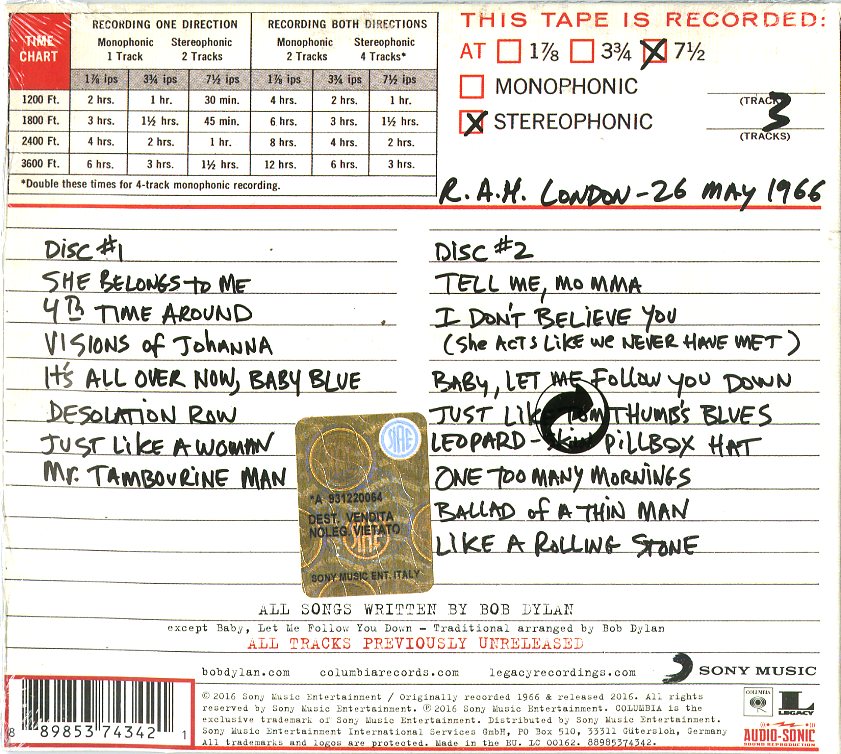 TIME
CHART
RECORDING ONE DIRECTION
RECORDING BOTH DIRECTIONS
Monophonic Stereophonic Monophonic Stereophonic
1 Track 2 Tracks 2 Tracks 4 Tracks*
1⅞ ips 3¾ ips 7½ ips 1⅞ ips 3¾ ips 7½ ips
1200 Ft. 2 hrs. 1 hr. 30 min. 4 hrs. 2 hrs. 1 hr.
1800 Ft. 3 hrs. 1½ hrs. 45 min. 6 hrs. 3 hrs. 1½ hrs.
2400 Ft. 4 hrs. 2 hrs. 1 hr. 8 hrs. 4 hrs. 2 hrs.
3600 Ft. 6 hrs. 3 hrs. 1½ hrs. 12 hrs. 6 hrs. 3 hrs.
*Double these times for 4-track monophonic recording.
THIS TAPE IS RECORDED:
AT 1⅞ 3¾ X 7½
MONOPHONIC
(TRACK)
X STEREOPHONIC 3
(TRACKS)
R.A.H. LONDON - 26 MAY 1966
DISC #1
SHE BELONGS TO ME
4TH TIME AROUND
VISIONS of JOHANNA
It's ALL OVER NOW, BABY BLUE
DESOLATION ROW
JUST LIKE A WOMAN
Mr. TAMBOURINE MAN
DISC #2
TELL ME, MOMMA
I DON'T BELIEVE YOU
(She ACTS LIKE we NEVER HAVE MET)
BABY, LET ME FOLLOW YOU DOWN
JUST LIKE TOM THUMB'S BLUES
LEOPARD-SKIN PILLBOX HAT
ONE TOO MANY MORNINGS
BALLAD of A THIN MAN
LIKE A ROLLING STONE
SIAE
*A 931220064
DEST. VENDITA
NOLEG. VIETATO
SIAE
SONY MUSIC ENT. ITALY
ALL SONGS WRITTEN BY BOB DYLAN
except Baby, Let Me Follow You Down – Traditional arranged by Bob Dylan
ALL TRACKS PREVIOUSLY UNRELEASED
bobdylan.com columbiarecords.com legacyrecordings.com
SONY MUSIC
© 2016 Sony Music Entertainment / Originally recorded 1966 & released 2016. All rights
reserved by Sony Music Entertainment. ℗ 2016 Sony Music Entertainment. COLUMBIA is the
exclusive trademark of Sony Music Entertainment. Distributed by Sony Music Entertainment.
Sony Music Entertainment International Services GmbH, PO Box 510, 33311 Gütersloh, Germany
All trademarks and logos are protected. Made in the EU. LC 00162. 88985374342
8 89853 74342 1
COLUMBIA
L
LEGACY
AUDIO-SONIC
SOUND REPRODUCTION